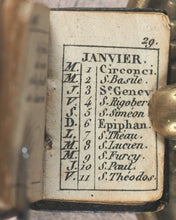 29.
JANVIER.
M. 1 Circonci.
M. 2 S. Basile.
J. 3 Se. Genev
V. 4 S. Rigobert
S. 5 S. Simeon
D. 6 Epiphan.
L. 7 S. Theau.
M. 8 S. Lucien.
M. 9 S. Furcy.
J. 10 S. Paul.
V. 11 S. Théodos.